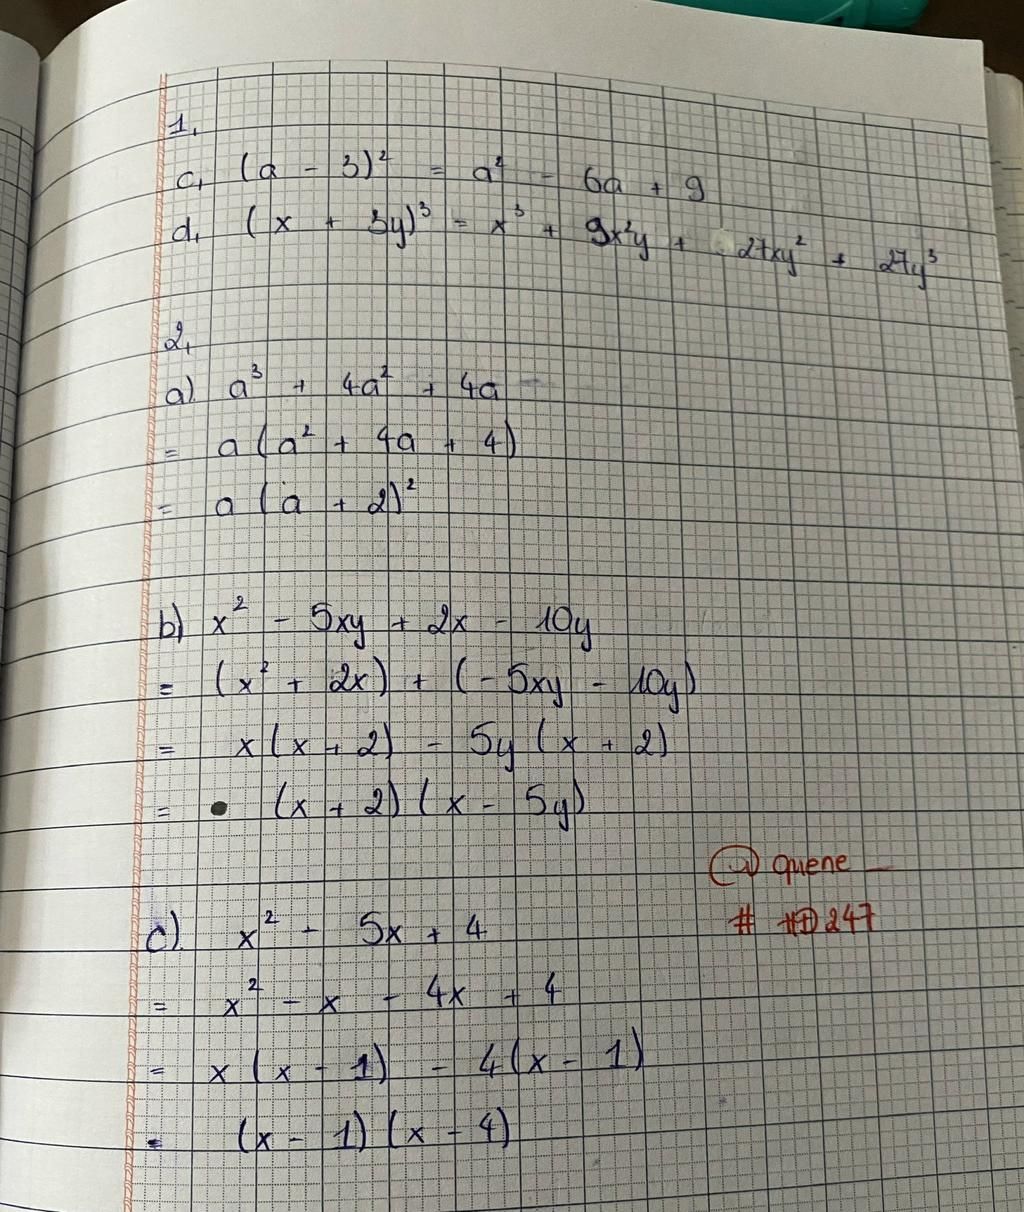 1,
c, (a - 3)² = a² - 6a + 9
d, (x + 3y)³ = x³ + 9x²y + 27xy² + 27y³
2,
a) a³ + 4a² + 4a
= a(a² + 4a + 4)
= a(a + 2)²
b) x² - 5xy + 2x - 10y
= (x² + 2x) + (-5xy - 10y)
= x(x + 2) - 5y(x + 2)
= (x + 2)(x - 5y)
@ quene_
c) x² - 5x + 4
# HD247
= x² - x - 4x + 4
= x(x - 1) - 4(x - 1)
= (x - 1)(x - 4)